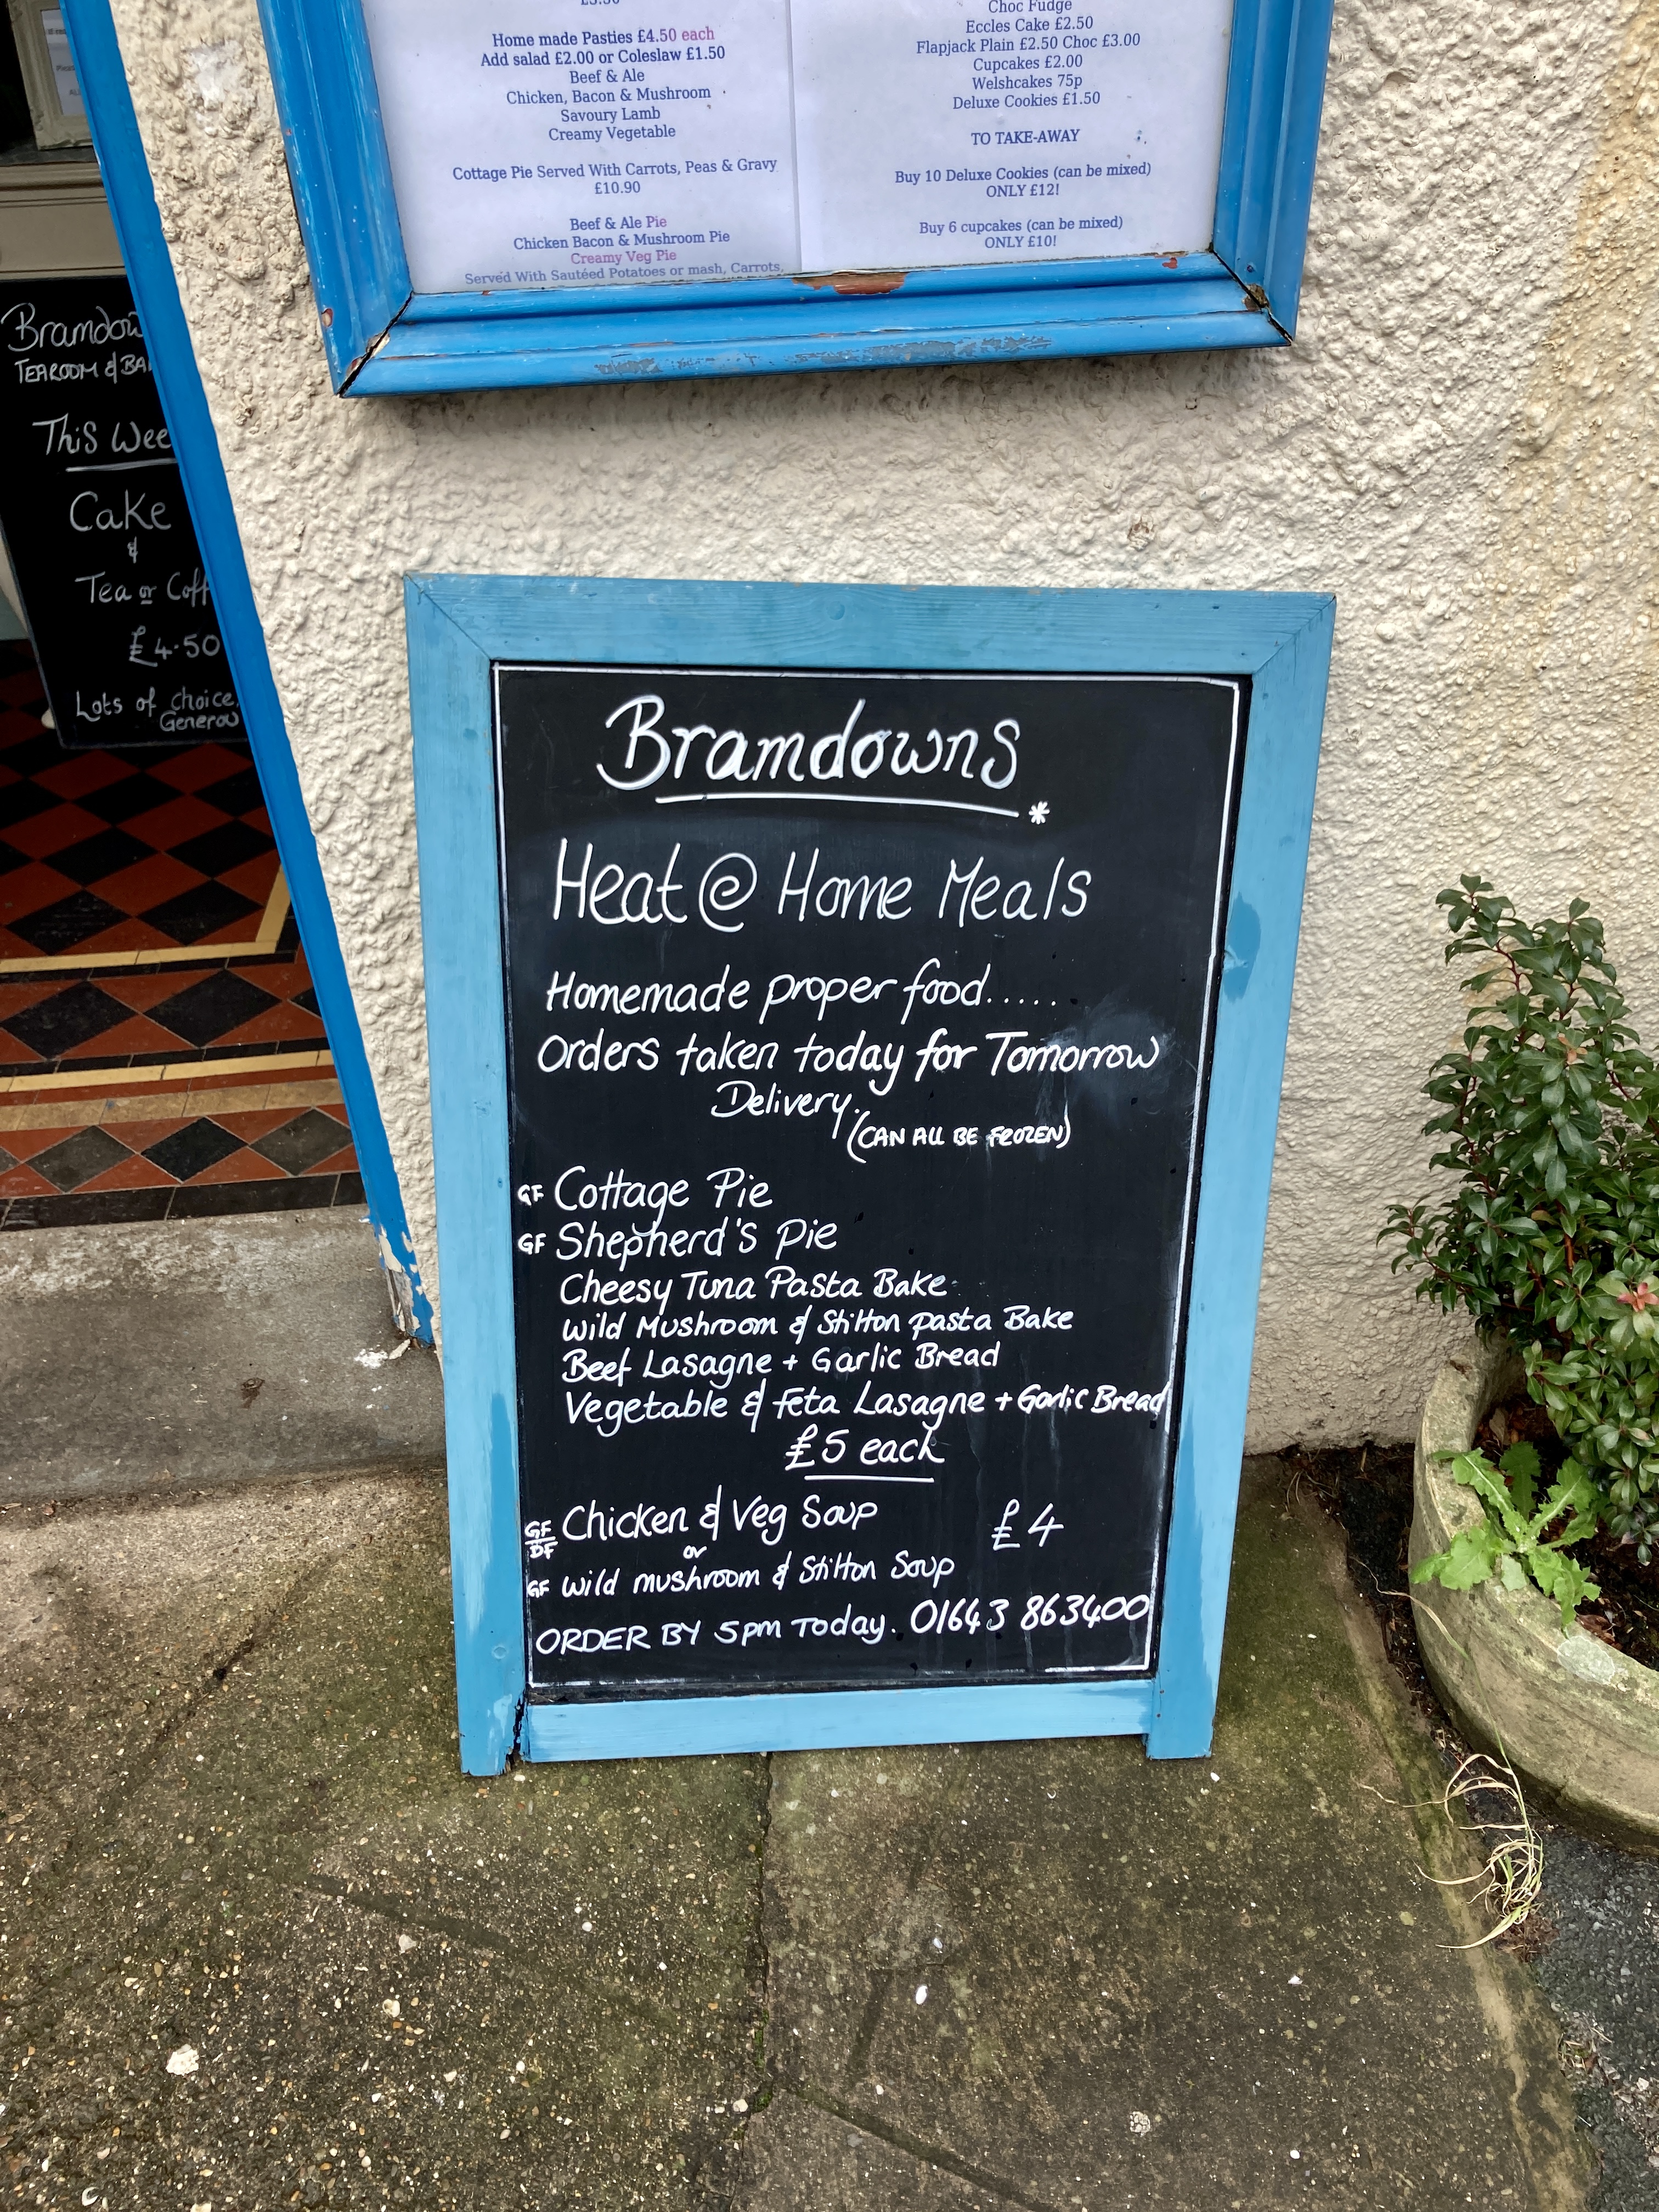 Home made Pasties £4.50 each
Add salad £2.00 or Coleslaw £1.50
Beef & Ale
Chicken, Bacon & Mushroom
Savoury Lamb
Creamy Vegetable
Cottage Pie Served With Carrots, Peas & Gravy
£10.90
Beef & Ale Pie
Chicken Bacon & Mushroom Pie
Creamy Veg Pie
Served With Sautéed Potatoes or mash, Carrots,
Choc Fudge
Eccles Cake £2.50
Flapjack Plain £2.50 Choc £3.00
Cupcakes £2.00
Welshcakes 75p
Deluxe Cookies £1.50
TO TAKE-AWAY
Buy 10 Deluxe Cookies (can be mixed)
ONLY £12!
Buy 6 cupcakes (can be mixed)
ONLY £10!
Bramdow
TEAROOM & BA
This Wee
Cake
&
Tea or Coff
£4.50
Lots of choice
Generou
Bramdowns
*
Heat @ Home Meals
Homemade proper food.....
Orders taken today for Tomorrow
Delivery.
(CAN ALL BE FROZEN)
GF Cottage Pie
GF Shepherd's Pie
Cheesy Tuna Pasta Bake
Wild Mushroom & Stilton pasta Bake
Beef Lasagne + Garlic Bread
Vegetable & Feta Lasagne + Garlic Bread
£5 each
GF DF Chicken & Veg Soup £4
or
GF Wild mushroom & Stilton Soup
ORDER BY 5pm Today. 01643 863400